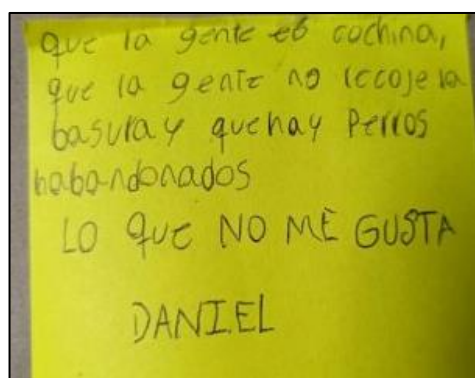 que la gente es cochina,
que la gente no recoje la
basura y que hay perros
habandonados
LO que NO ME GUSTA
DANIEL